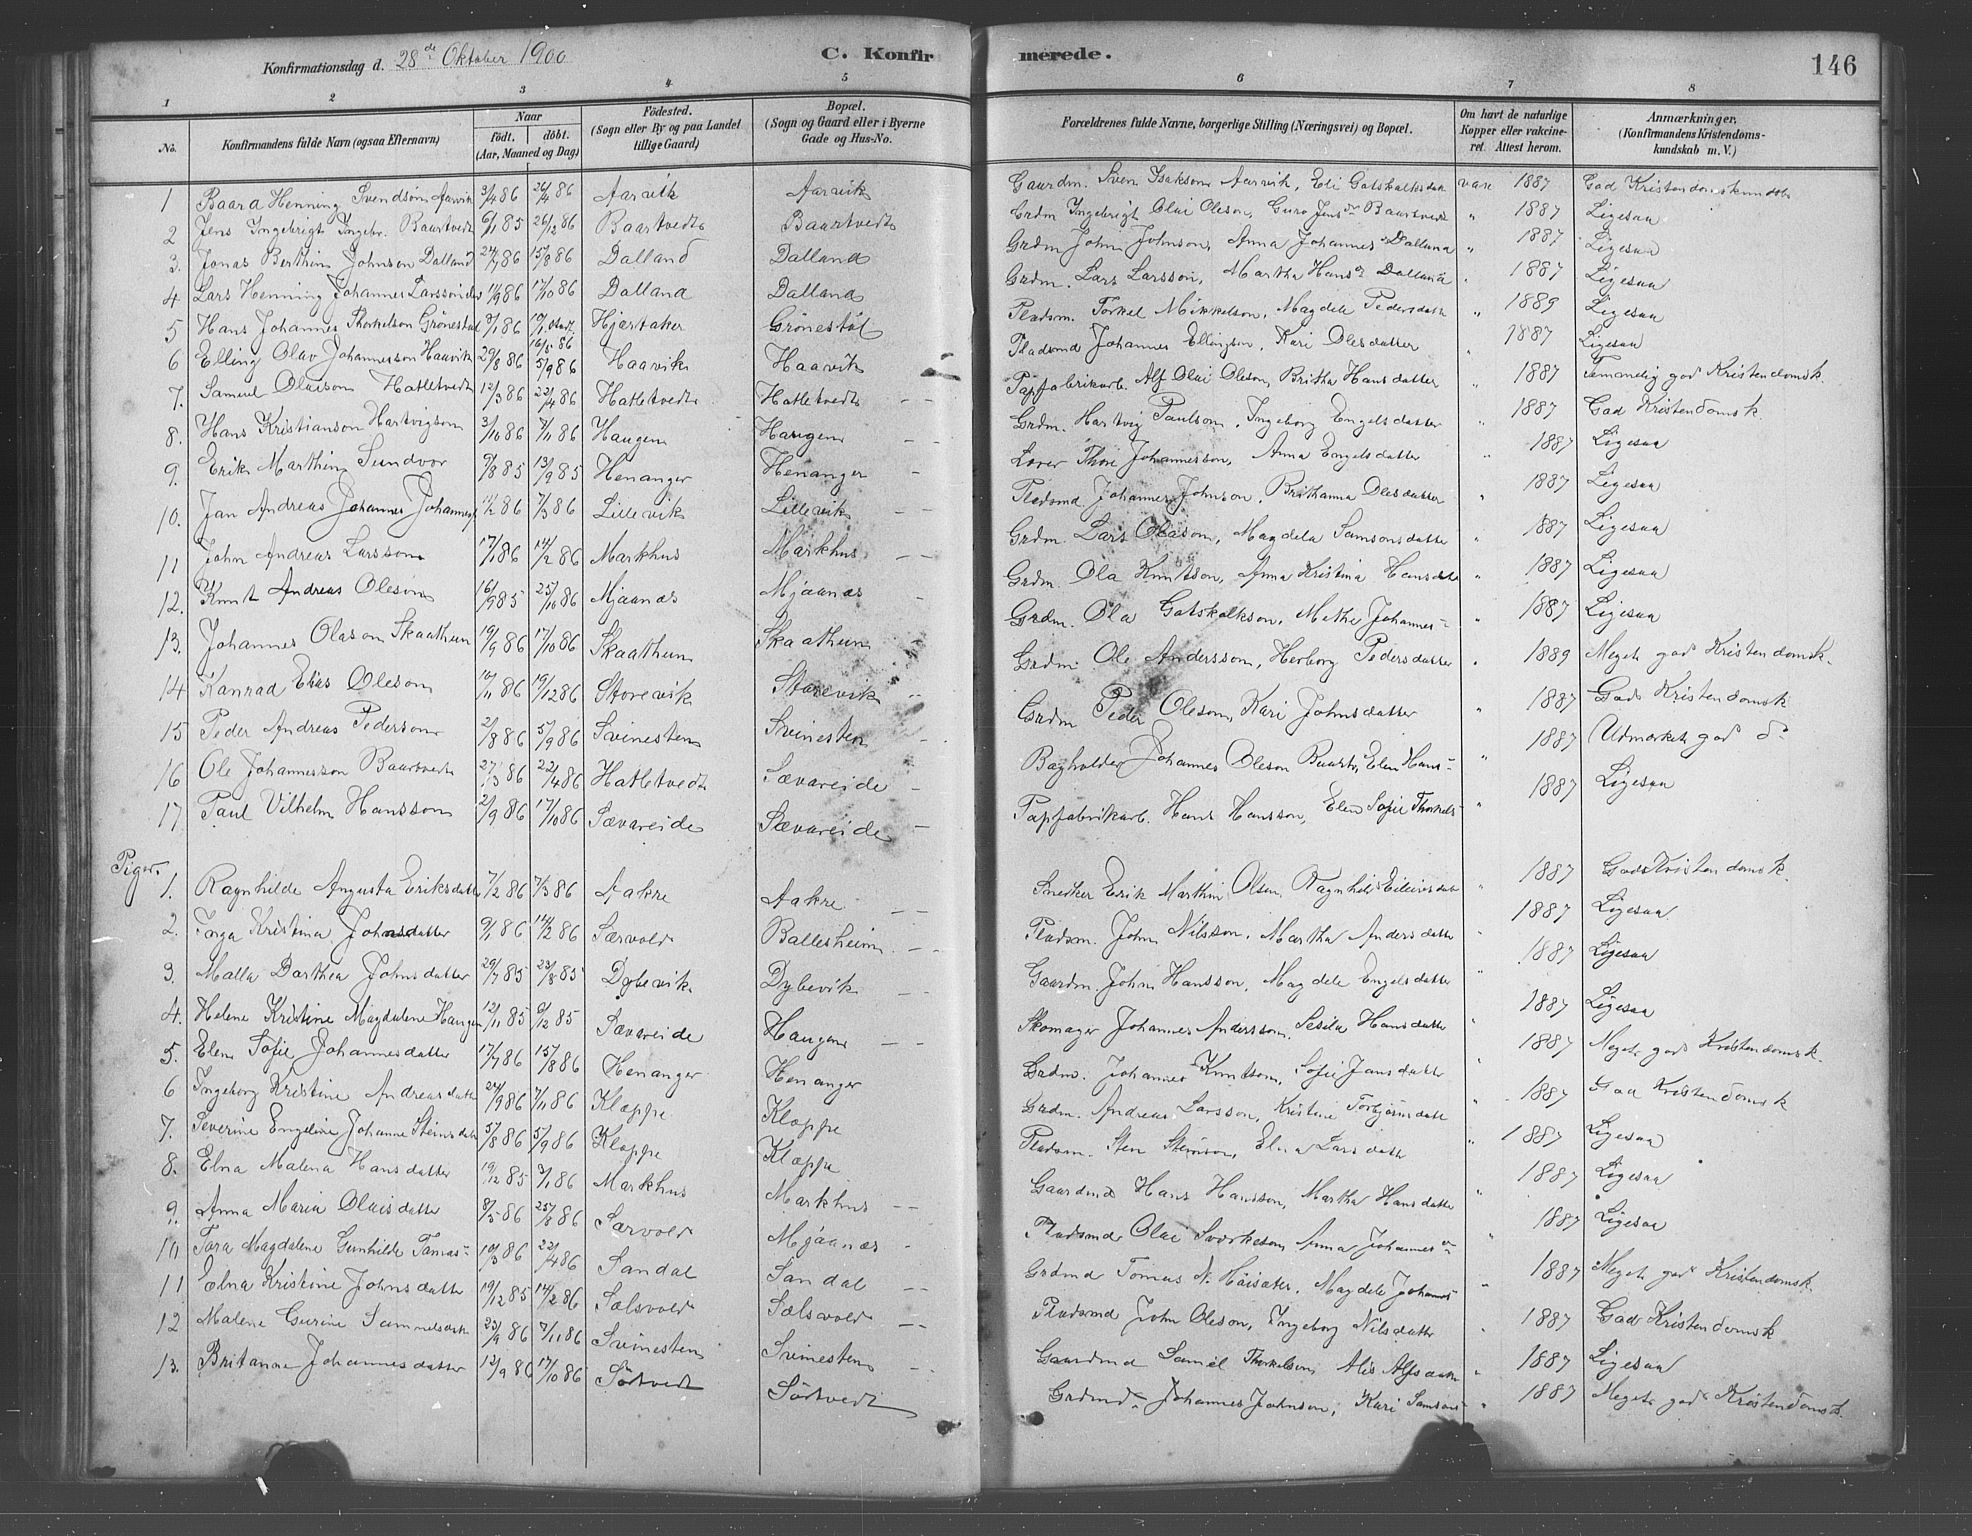 Konfirmationsdag d. 28de Oktober 1900 C. Konfirmerede. 146
1 2 3 4 5 6 7 8
No. Konfirmandens fulde Navn (ogsaa Efternavn) Naar födt. döbt. (Aar, Maaned og Dag) Födested. (Sogn eller By og paa Landet tillige Gaard) Bopæl. (Sogn og Gaard eller i Byerne Gade og Hus-No. Forældrenes fulde Navne, borgerlige Stilling (Næringsvei) og Bopæl. Om havt de naturlige Kopper eller vakcineret. Attest herom. Anmærkninger. (Konfirmandens Kristendomskundskab m. V.)
1 Baard Henning Svendsön Aarvik 3/4 86 26/4 86 Aarvik Aarvik Gaardm. Sven Isakson Aarvik, Eli Gatskalksdat vac 1887 God Kristendomskundsk
2 Jens Ingebrigt Ingebr. Baartvedt 6/1 85 26/12 86 Baartvedt Baartvedt Grdm Ingebrigt Olai Oleson, Guro Jensdr Baartvedt " 1887 Ligesaa
3. Jonas Berthin Johnson Dalland 24/7 86 15/8 86 Dalland Dalland Grdm John Johnson, Anna Johannes Dalland " 1887 Ligesaa
4 Lars Henning Johannes Larsson 11/9 86 17/10 86 Dalland Dalland Grdm. Lars Larsson, Martha Hansdr Dalland " 1887 Ligesaa
5 Hans Johannes Thorkelson Grönestöl 3/1 86 Hjartaker Grönestöl Pladsm. Torkel Mikkelson, Magdela Pedersdatter " 1889 Ligesaa
6 Elling Olav Johannesson Haavik 29/8 86 5/9 86 Haavik Haavik Pladsmd Johannes Ellingson, Kari Olesdatter " 1887 Ligesaa
7. Samuel Olaison Hatletvedt 12/3 86 22/4 86 Hatletvedt Hatletvedt Papfabrikarb. Alf Olai Oleson, Britha Hansdatter " 1887 Temmelig god Kristendomsk.
8. Hans Kristianson Hartvigson 3/10 86 7/11 86 Haugen Haugen Grdm. Hartvig Paulson, Ingeborg Engelsdatter " 1887 God Kristendomsk.
9. Erik Marthin Sundvor 9/8 85 13/9 85 Henanger Henanger Thore Johannesson, Anna Engelsdatter " 1887 Ligesaa
10. Jan Andreas Johannes Johannes 11/2 86 7/3 86 Lillevik Lillevik Pladsmd Johannes Johnson, Brithanna Olesdatter " 1887 Ligesaa
11 John Andreas Larsson 17/1 86 14/2 86 Markhus Markhus Grdm. Lars Olason, Magdela Samsonsdatter " 1887 Ligesaa
12. Knut Andreas Oleson 16/9 85 25/10 86 Mjaanæs Mjaanæs Grdm. Ola Knutson, Anna Kristina Hansdat " 1887 Ligesaa
13. Johannes Olason Skaathun 19/9 86 17/10 86 Skaathun Skaathun Grdm. Ola Gatskalkson, Methe Johannes- " 1887 Ligesaa
14 Konrad Elias Oleson 10/11 86 19/12 86 Storevik Storevik Grdm. Ole Andersson, Herborg Pedersdatter " 1889 Meget god Kristendomsk.
15 Peder Andreas Pederson 2/8 86 5/9 86 Svinesten Svinesten Grdm Peder Oleson, Kari Johnsdatter " 1887 God Kristendomsk
16 Ole Johannesson Baartvedt 27/3 86 22/4 86 Hatletvedt Sævareide Bagholder Johannes Oleson Baart, Elen Hans- " 1887 Udmærket god do
17 Paul Vilhelm Hansson 2/9 86 17/10 86 Sævareide Sævareide Papfabrikarb. Hans Hansson, Elen Sofie Thorkels- " 1887 Ligesaa
Piger.
1. Ragnhilde Augusta Eriksdatter 7/2 86 7/3 86 Aakre Aakre Snedker Erik Marthin Olsen, Ragnhild Eileivsdat " 1887 God Kristendomsk.
2. Inga Kristina Johnsdatter 9/1 86 14/2 86 Særvold Ballesheim Pladsm. John Nilsson, Martha Andersdatter 1887 Ligesaa
3. Malla Darthea Johnsdatter 29/7 85 23/8 85 Dybevik Dybevik Gaardm. John Hansson, Magdele Engelsdatter " 1887 Ligesaa
4. Helene Kristine Magdalene Haugen 12/11 85 6/12 85 Sævareide Haugen Skomager Johannes Andersson, Sesila Hansdatter " 1887 Ligesaa
5. Elen Sofie Johannesdatter 17/7 86 15/8 86 Henanger Henanger Grdm. Johannes Knutson, Sofie Jansdatter " 1887 Meget god Kristendomsk.
6 Ingeborg Kristine Andreasdatt 24/9 86 7/11 86 Kloppe Kloppe Grdm. Andreas Larsson, Kristine Torbjörnsdatt " 1887 God Kristendomsk
7. Severine Engeline Johanne Steinsdat 5/8 86 5/9 86 Kloppe Kloppe Pladsm. Sten Stenson, Elna Larsdatter " 1887 Ligesaa
8. Elna Malena Hansdatter 19/12 85 3/1 86 Markhus Markhus Gaardmd Hans Hansson, Martha Hansdatter " 1887 Ligesaa
9. Anna Maria Olaisdatter 8/5 86 25/8 86 Særvold Mjaanæs Pladsmd Olai Sværkeson, Anna Johannesdr " 1887 Ligesaa
10. Tara Magdalene Gunhilde Tomas- 10/3 86 22/4 86 Sandal Sandal Grdmd Tomas N. Höisæter, Magdele Johannes- " 1887 Meget god Kristendomsk.
11 Elna Kristine Johnsdatter 19/12 85 14/2 86 Sælsvold Sælsvold Pladsmd John Oleson, Ingeborg Nilsdatter " 1887 God Kristendomsk
12 Malene Gurine Sammelsdatt 23/9 86 7/11 86 Svinesten Svinesten Gaardmd Samel Thorkelson, Alis Alfsdatter " 1887 Ligesaa
13. Britanne Johannesdatter 12/9 86 17/10 86 Södtvedt Södtvedt Grdmd. Johannes Johnson, Kari Samsons- " 1887 Meget god Kristendomsk.